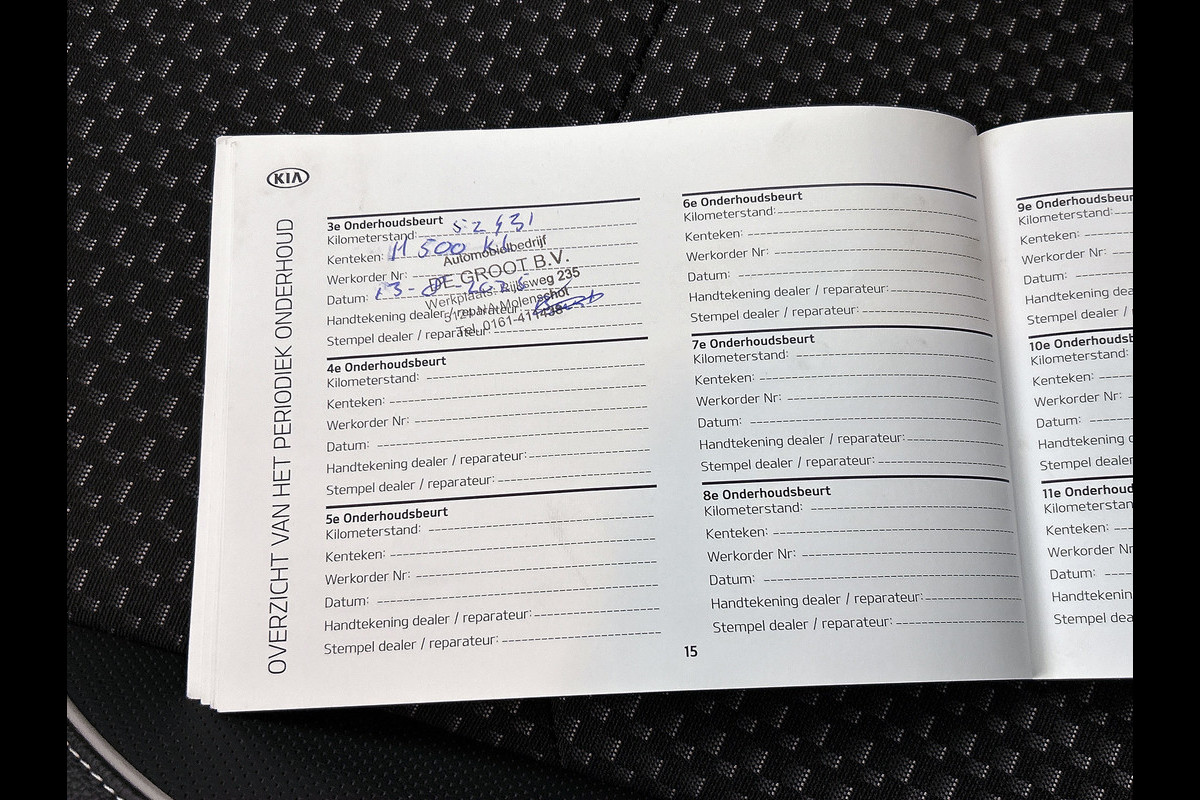 KIA
OVERZICHT VAN HET PERIODIEK ONDERHOUD
3e Onderhoudsbeurt
Kilometerstand:
Kenteken: H 500 KL
Werkorder Nr:
Datum:
Handtekening dealer / reparateur:
Stempel dealer / reparateur:
Automobielbedrijf
DE GROOT B.V.
Werkplaats: Rijksweg 235
Molenschot
Tel. 0161-411438
4e Onderhoudsbeurt
Kilometerstand:
Kenteken:
Werkorder Nr:
Datum:
Handtekening dealer / reparateur:
Stempel dealer / reparateur:
5e Onderhoudsbeurt
Kilometerstand:
Kenteken:
Werkorder Nr:
Datum:
Handtekening dealer / reparateur:
Stempel dealer / reparateur:
6e Onderhoudsbeurt
Kilometerstand:
Kenteken:
Werkorder Nr:
Datum:
Handtekening dealer / reparateur:
Stempel dealer / reparateur:
7e Onderhoudsbeurt
Kilometerstand:
Kenteken:
Werkorder Nr:
Datum:
Handtekening dealer / reparateur:
Stempel dealer / reparateur:
8e Onderhoudsbeurt
Kilometerstand:
Kenteken:
Werkorder Nr:
Datum:
Handtekening dealer / reparateur:
Stempel dealer / reparateur:
15
9e Onderhoudsbeur
Kilometerstand:
Kenteken:
Werkorder Nr:
Datum:
Handtekening dea
Stempel dealer /
10e Onderhoudsb
Kilometerstand:
Kenteken:
Werkorder Nr:
Datum:
Handtekening d
Stempel dealer
11e Onderhoud
Kilometerstan
Kenteken:
Werkorder Nr
Datum:
Handtekening
Stempel dea